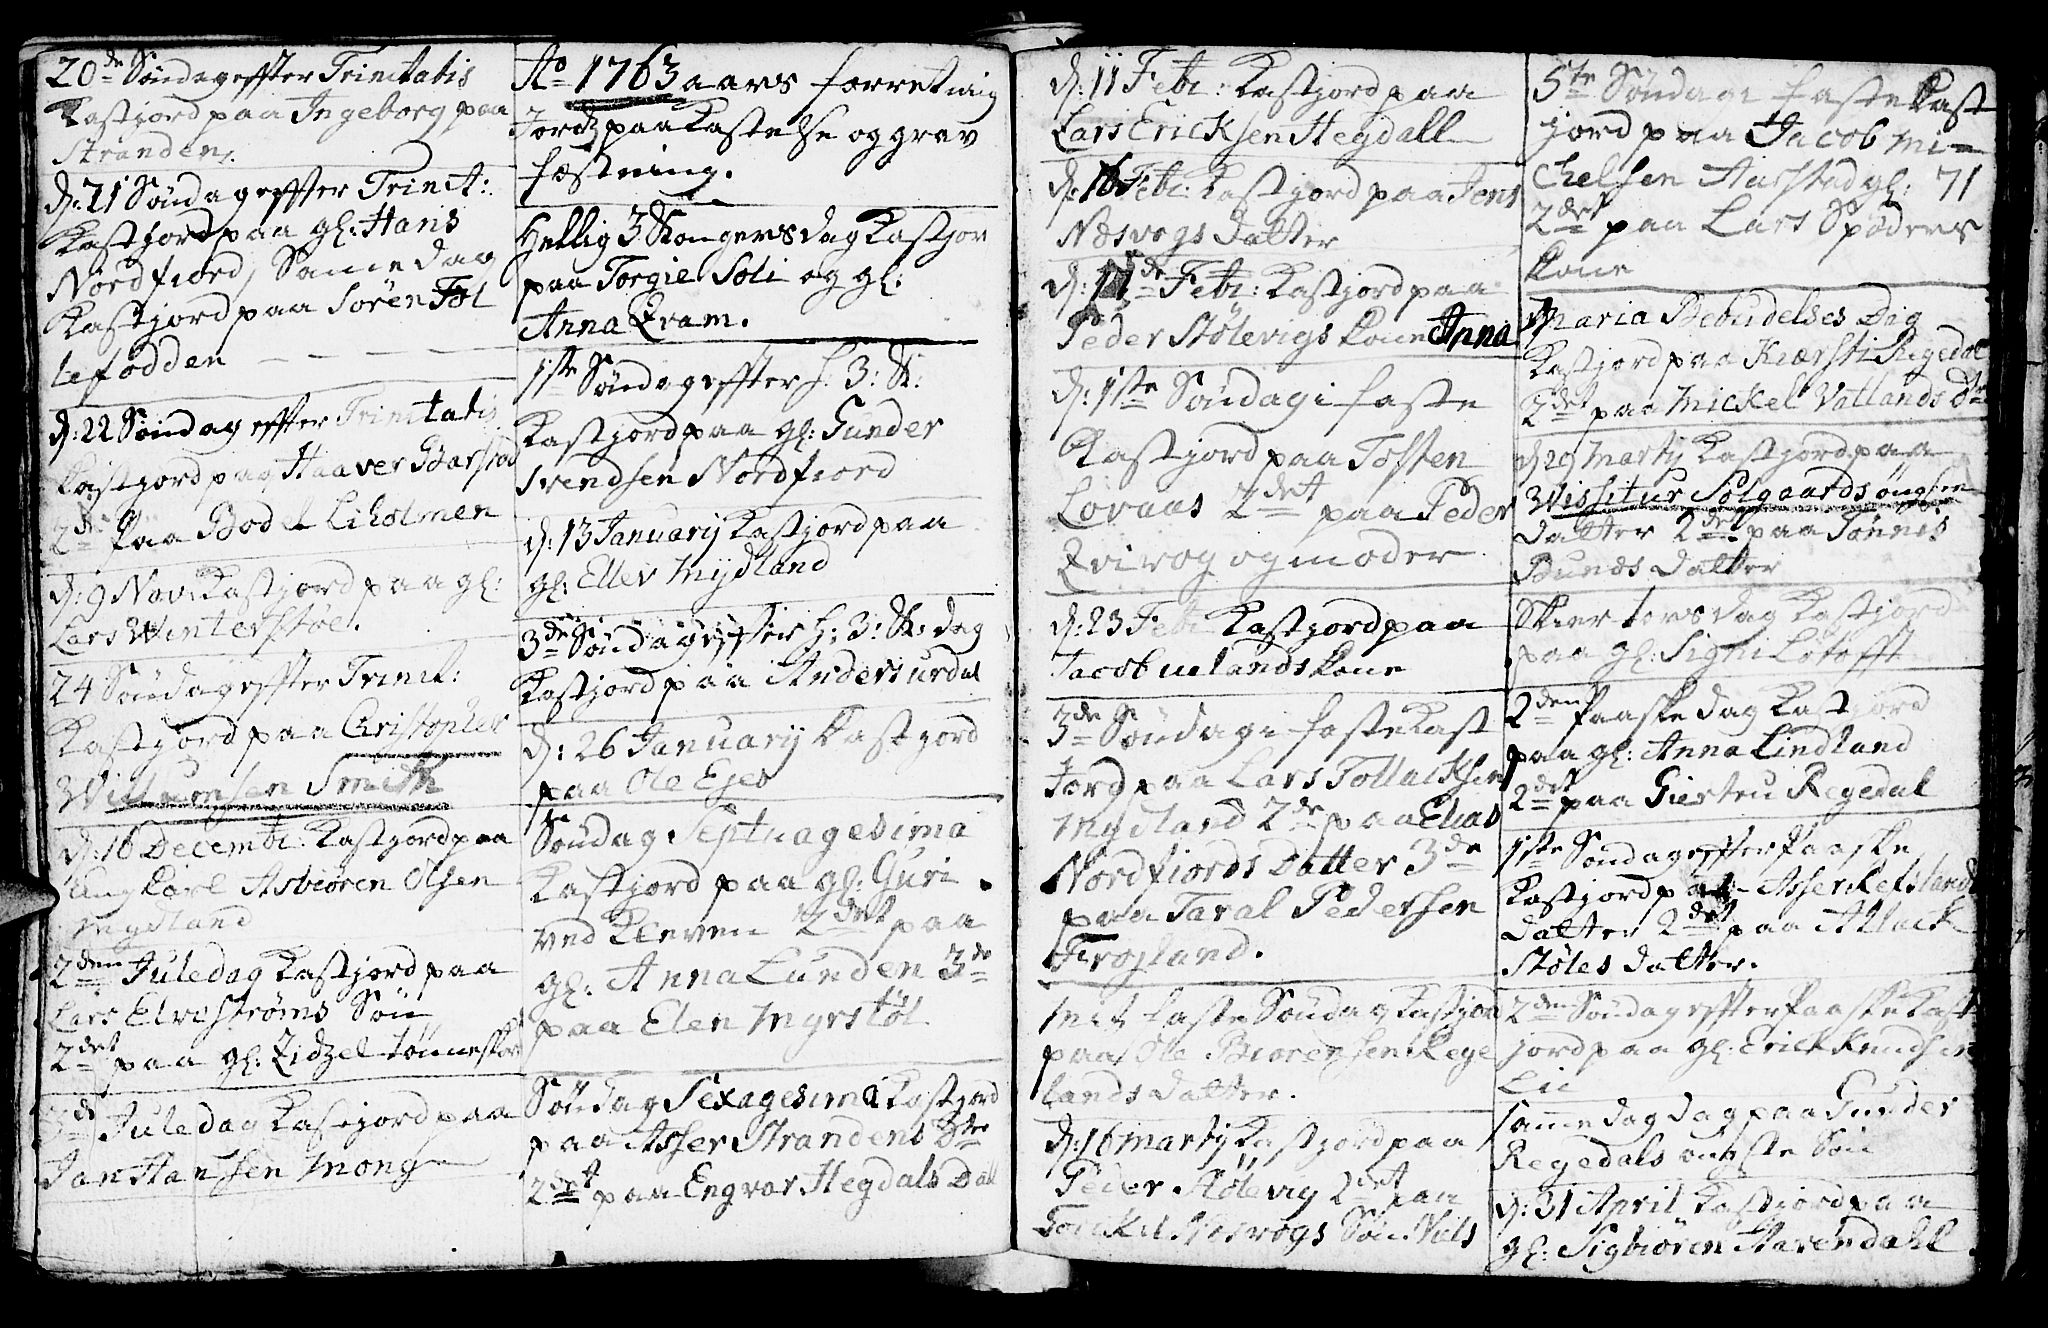 20de Söndag effter Trinitatis
Kastjord paa Ingeborg paa
Stranden.
d: 21 Söndag effter Trinit:
Kastjord paa gl: Hans
Nordfiord, Samme dag
Kastjord paa Sören Föl
lefodden — — — —
d: 22 Söndag effter Trinitatis
Kastjord paa Haaver Barstad
2de Paa Bodel Liholmen
d: 9 Nov: Kastjord paa gl:
Lars Winterstöl.
24 Söndag effter Trinit:
Kastjord paa Christopher
Willumsen Smith
d: 16 Decembr: Kastjord paa
ung Karl Asbiören Olsen
Mydland
2den Juledag Kastjord paa
Lars Elveströms Sön
2det paa gl: Zidzel tönnes
3de Juledag Kastjord paa
Jan Hansen Mong
Ao 1763 aars forretning
Jords paa Kastelse og grav
fæstning.
Hellig 3 Kongers dag Kastjor
paa Torgie Soli og gl:
Anna Qvam.
1ste Söndag effter h. 3: K:
Kastjord paa gl: Gunder
Svendsen Nordfiord
d: 13 January Kastjord paa
gl: Ellev Mydland
3de Söndag effter H: 3: K: dag
Kastjord paa Anders urdal
d: 26 January Kastjord
paa Ole Ejes
Söndag Septuagesima
Kastjord paa gl: Guri
ved Kleven 2det paa
gl: Anna Lunden 3de
paa Elen Myrstöl
Söndag Sexagesima Kastjord
paa Asser Strandens
2det paa Engvar Hegdals Dat
d: 11 Febr: Kastjord paa
Lars Ericksen Hegdall
d: 16 Febr: Kastjord paa Jens
Næsvogs datter
d: 17de Febr: Kastjord paa
Peder Stölevigs Kone Anna
d: 1ste Söndag i faste
Kastjord paa Tosten
Lovaas 2det paa Peder
Qvivog og moder
d: 23 Febr Kastjord paa
Jacob uelands Kone
3de Söndag i faste Kast
Jord paa Lars Tollacksen
Mydland 2de paa Elias
Nordfiords Datter 3de
paa Taral Pedersen
Frøjland.
Mit faste Söndag Kastjord
paa Ole Biorensen Rege
lands datter.
d: 16 Marty Kastjord paa
Peder Stölevig 2det paa
Torckel Næsvogs Sön Niels
5te Söndag i faste Kast
jord paa Jacob Mi=
chelsen Aarstad gl: 71
2det paa Lars Spöders
Kone
Maria Bebudelses Dag
Kastjord paa Kiersti Regedal
2det paa Mickel Vatlands Dr
d 29 Marty Kastjord paa
Wissitur Solgaards öngste
datter 2det paa Tönnes
Bunds datter
Skiertorsdag Kastjord
paa gl: Signi Lötofft
2den Paaske dag Kastjord
paa gl: Anna Lindland
2det paa Giertru Regedal
1ste Söndag effter Paaske
Kastjord paa Asser Refslands
datter 2det paa Atlack
Stöles datter.
2den Söndag effter Paaske Kast
jord paa gl: Erick Knudsen
Lie
samme dag dag paa Gunder
Regedals ongste Sön
d: 31 April Kastjord paa
gl: Sigbiören Havendahl